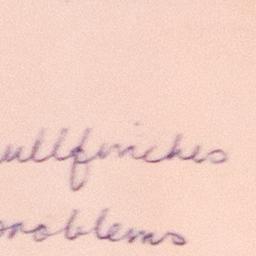 ullfinches
problems